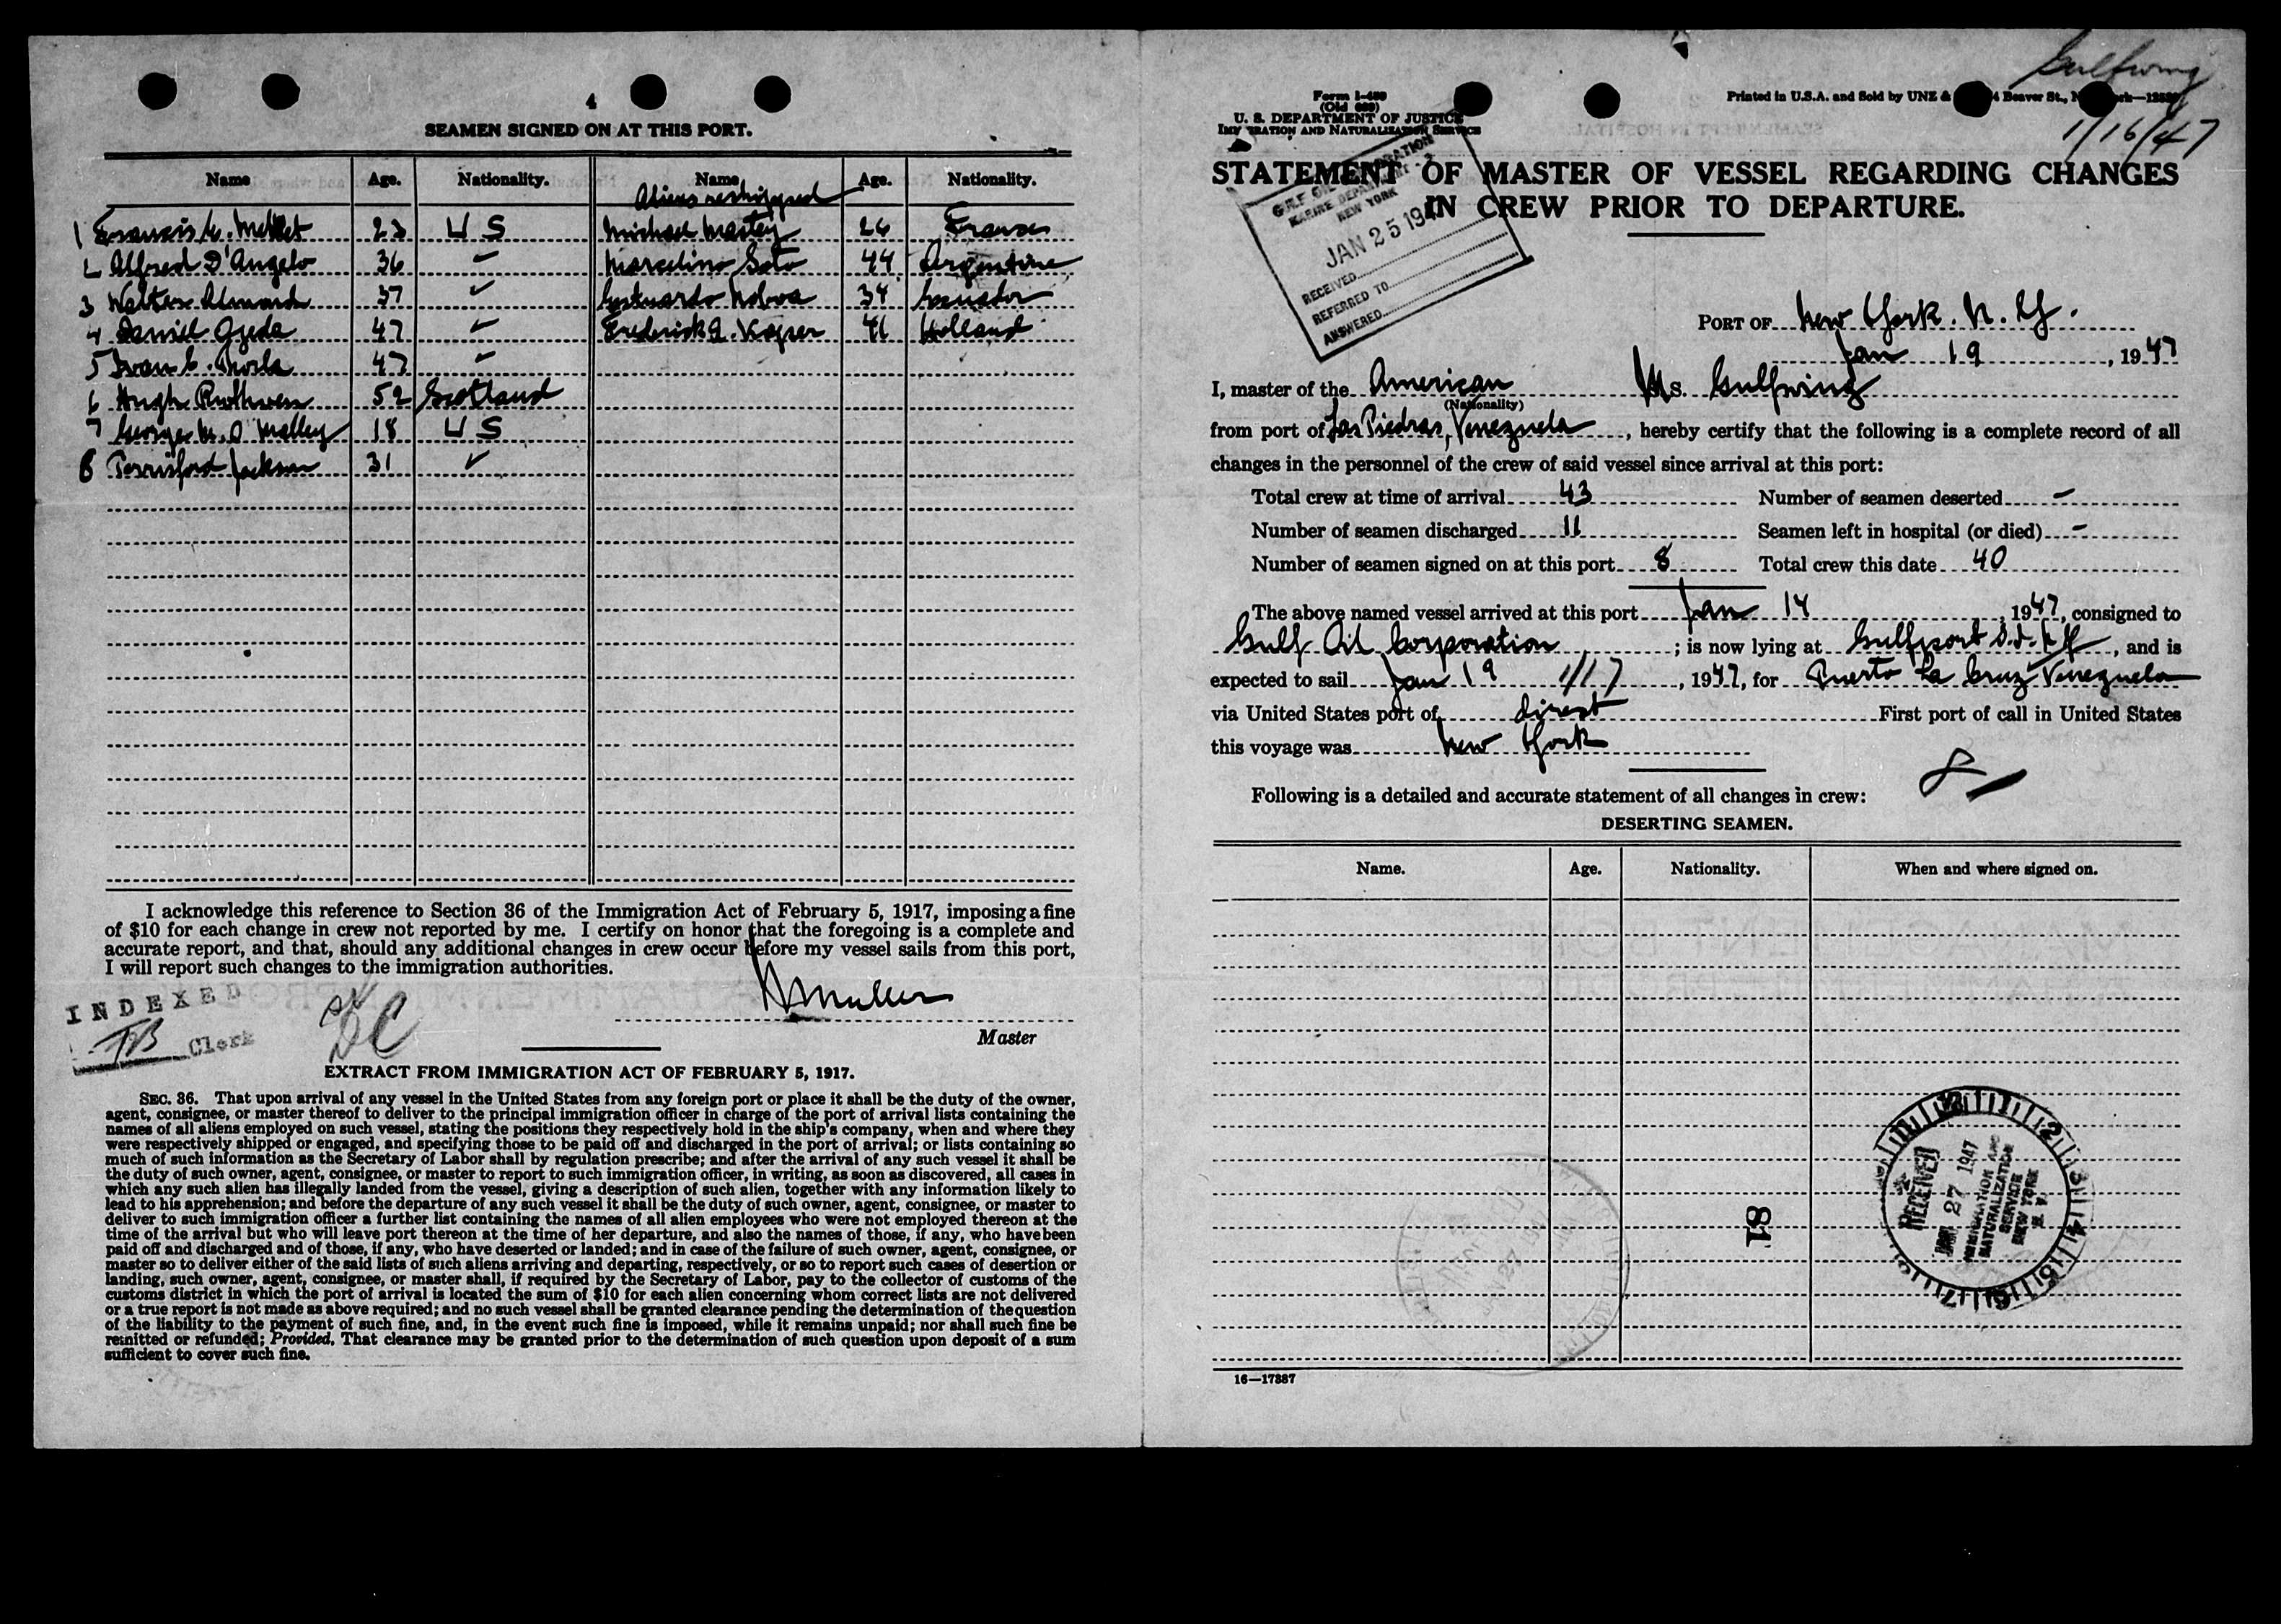 4
SEAMEN SIGNED ON AT THIS PORT.
Name Age. Nationality. Name Age. Nationality.
Aliens reshipped
1 Francis 23 U S Michael 26 France
2 Alfred D'Angelo 36 ✓ Marcelino Soto 44 Argentine
3 Walter 37 ✓ Noboa 34 Ecuador
4 Daniel Ojeda 47 ✓ Frederick Kayser 41 Holland
5 47 ✓
6 Hugh Ruthven 52 Scotland
7 George M. O'Malley 18 U S
8 Jackson 31 ✓
I acknowledge this reference to Section 36 of the Immigration Act of February 5, 1917, imposing a fine
of $10 for each change in crew not reported by me. I certify on honor that the foregoing is a complete and
accurate report, and that, should any additional changes in crew occur before my vessel sails from this port,
I will report such changes to the immigration authorities.
INDEXED
TB Clerk
Muller
Master
EXTRACT FROM IMMIGRATION ACT OF FEBRUARY 5, 1917.
SEC. 36. That upon arrival of any vessel in the United States from any foreign port or place it shall be the duty of the owner,
agent, consignee, or master thereof to deliver to the principal immigration officer in charge of the port of arrival lists containing the
names of all aliens employed on such vessel, stating the positions they respectively hold in the ship's company, when and where they
were respectively shipped or engaged, and specifying those to be paid off and discharged in the port of arrival; or lists containing so
much of such information as the Secretary of Labor shall by regulation prescribe; and after the arrival of any such vessel it shall be
the duty of such owner, agent, consignee, or master to report to such immigration officer, in writing, as soon as discovered, all cases in
which any such alien has illegally landed from the vessel, giving a description of such alien, together with any information likely to
lead to his apprehension; and before the departure of any such vessel it shall be the duty of such owner, agent, consignee, or master to
deliver to such immigration officer a further list containing the names of all alien employees who were not employed thereon at the
time of the arrival but who will leave port thereon at the time of her departure, and also the names of those, if any, who have been
paid off and discharged and of those, if any, who have deserted or landed; and in case of the failure of such owner, agent, consignee, or
master so to deliver either of the said lists of such aliens arriving and departing, respectively, or so to report such cases of desertion or
landing, such owner, agent, consignee, or master shall, if required by the Secretary of Labor, pay to the collector of customs of the
customs district in which the port of arrival is located the sum of $10 for each alien concerning whom correct lists are not delivered
or a true report is not made as above required; and no such vessel shall be granted clearance pending the determination of the question
of the liability to the payment of such fine, and, in the event such fine is imposed, while it remains unpaid; nor shall such fine be
remitted or refunded; Provided, That clearance may be granted prior to the determination of such question upon deposit of a sum
sufficient to cover such fine.
Gulfwing
1/16/47
Form I-489
(Old 689)
U. S. DEPARTMENT OF JUSTICE
IMMIGRATION AND NATURALIZATION SERVICE
Printed in U.S.A. and Sold by UNZ & Beaver St.,
STATEMENT OF MASTER OF VESSEL REGARDING CHANGES
IN CREW PRIOR TO DEPARTURE.
GULF OIL CORPORATION
MARINE DEPARTMENT
NEW YORK
JAN 25 1947
RECEIVED
REFERRED TO
ANSWERED
PORT OF New York, N. Y.
Jan 19, 1947
I, master of the American Ms. Gulfwing
(Nationality)
from port of Las Piedras, Venezuela, hereby certify that the following is a complete record of all
changes in the personnel of the crew of said vessel since arrival at this port:
Total crew at time of arrival 43 Number of seamen deserted -
Number of seamen discharged 11 Seamen left in hospital (or died) -
Number of seamen signed on at this port 8 Total crew this date 40
The above named vessel arrived at this port Jan 14, 1947, consigned to
Gulf Oil Corporation; is now lying at Gulfport S.I. N.Y., and is
expected to sail Jan 19 1/17, 1947, for Puerto La Cruz Venezuela
via United States port of direct First port of call in United States
this voyage was New York
8
Following is a detailed and accurate statement of all changes in crew:
DESERTING SEAMEN.
Name. Age. Nationality. When and where signed on.
81
RECEIVED
JAN 27 1947
IMMIGRATION AND
NATURALIZATION
SERVICE
NEW YORK
N. Y.
16—17887